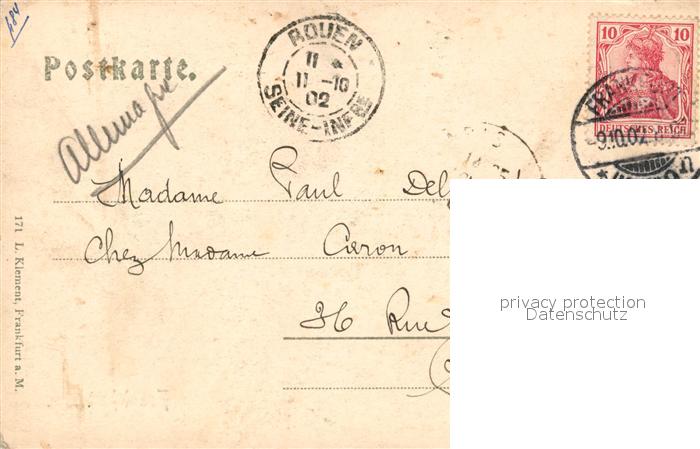 184
Postkarte.
Allemagne
ROUEN
11
11 -10
02
SEINE-INFRE
10 10
DEUTSCHES REICH
FRANKFURT
9.10.02
Madame Paul
Chez Madame Caron
36 Rue
171 L. Klement, Frankfurt a. M.
privacy protection
Datenschutz